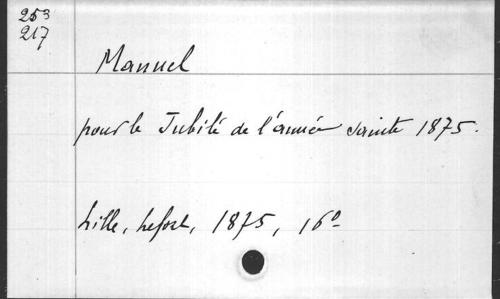 253
217
Manuel
pour le Jubilé de l'année sainte 1875.
Lille, Lefort, 1875, 16º